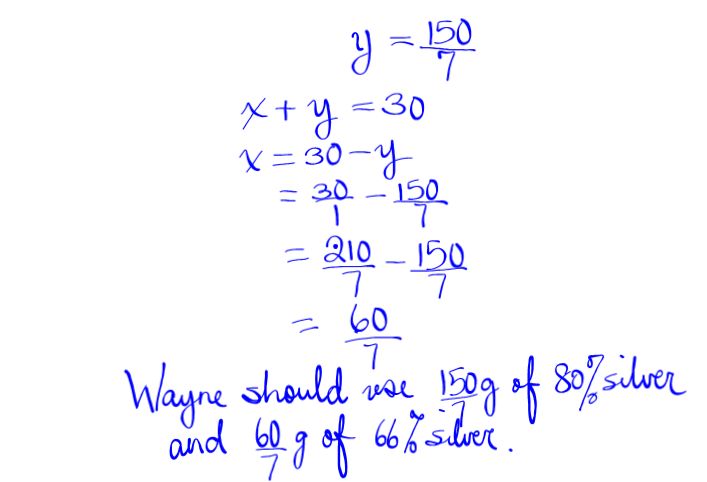 y = 150/7
x + y = 30
x = 30 - y
= 30/1 - 150/7
= 210/7 - 150/7
= 60/7
Wayne should use 150/7 g of 80% silver
and 60/7 g of 66% silver.